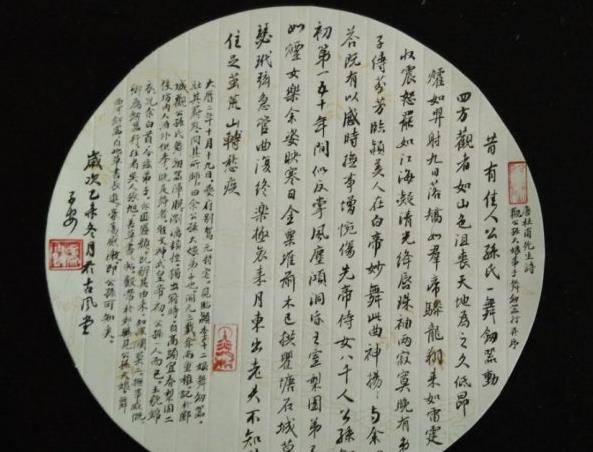 唐杜甫先生詩
觀公孫大娘弟子舞劍器行并序
昔有佳人公孫氏一舞劍器動
四方觀者如山色沮喪天地為之久低昂
㸌如羿射九日落矯如群帝驂龍翔來如雷霆
收震怒罷如江海凝清光絳唇珠袖兩寂寞晚有弟
子傳芬芳臨潁美人在白帝妙舞此曲神揚揚與余
答既有以感時撫事增惋傷先帝侍女八千人公孫劍
初第一五十年間似反掌風塵澒洞昏王室梨園弟子
如煙女樂餘姿映寒日金粟堆前木已拱瞿塘石城草
瑟玳筵急管曲復終樂極哀來月東出老夫不知
住足繭荒山轉愁疾
大曆二年十月十九日夔府別駕元持宅見臨潁李十二娘舞劍器
壯其蔚跂問其所師曰余公孫大娘弟子也開元三載余尚童稚記於郾
城觀公孫氏舞劍器渾脫瀏漓頓挫獨出冠時自高頭宜春梨園二
伎坊內人洎外供奉曉是舞者聖文神武皇帝初公孫一人而已玉貌錦
衣況余白首今茲弟子亦匪盛顏既辨其由來知波瀾莫二撫事感慨
聊為劍器行往者吳人張旭善草書帖數常於鄴縣見公孫大娘舞
西河劍器自此草書長進豪蕩感激即公孫可知矣
歲次乙未冬月於古風堂